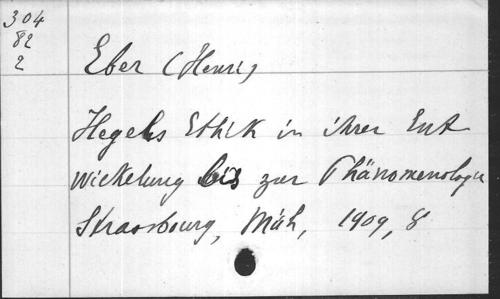 304
82
2
Eber (Henri)
Hegels Ethik in ihrer Ent
wickelung bis zur Phänomenologie
Strassbourg, Müh, 1909, 8